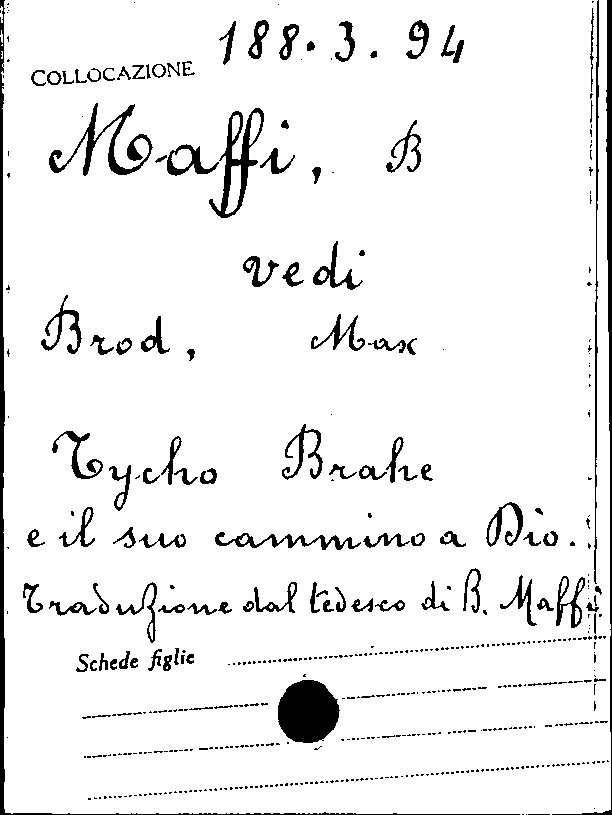 COLLOCAZIONE 188.3.94
Maffi, B
vedi
Brod, Max
Tycho Brahe
e il suo cammino a Dio.
Traduzione dal tedesco di B. Maffi.
Schede figlie